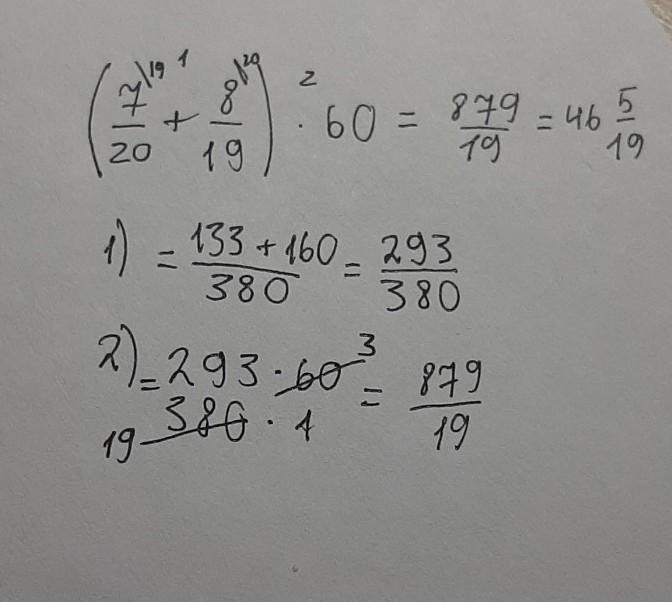 (7/20 \19 + 8/19 \20) · 60 = 879/19 = 46 5/19
1) = 133 + 160/380 = 293/380
2) = 293 · 60 3/380 · 1 19 = 879/19